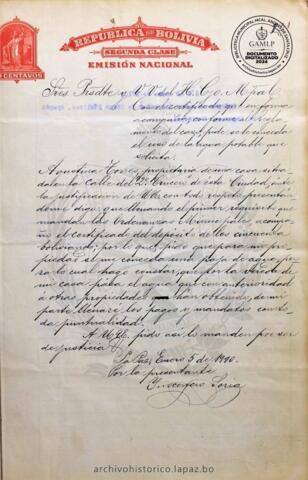 REPUBLICA DE BOLIVIA
SEGUNDA CLASE
EMISIÓN NACIONAL
CENTAVOS
GAMLP
DOCUMENTO
DIGITALIZADO
2024
Sres. Presdte. y V. V. del H. C.
Con el certificado que en forma
acompaña, conforme al regla-
mento del caso, pide se le conceda
el uso de la agua potable que
solicita.
Agustina Torres, propietaria de una casa situa-
da en la Calle del de esta Ciudad, ante
la justificación de con todo respeto presentán-
dome digo: que llenando el primer requisito que
mandan las Ordenanzas Municipales, acompa-
ño el certificado del depósito de los cincuenta
bolivianos; por lo que, pido que para mi pro-
piedad se me conceda una paja de agua, pa-
ra lo cual hago constar, que por la vereda de
mi casa pasa el agua que con anterioridad
á otras propiedades han obtenido, de mi
parte llenaré los pagos y mandatos con to-
da puntualidad.
A pido así lo manden por ser
de justicia
La Paz, Enero 5 de 1900.
Por la presentante
Soria
archivohistorico.lapaz.bo